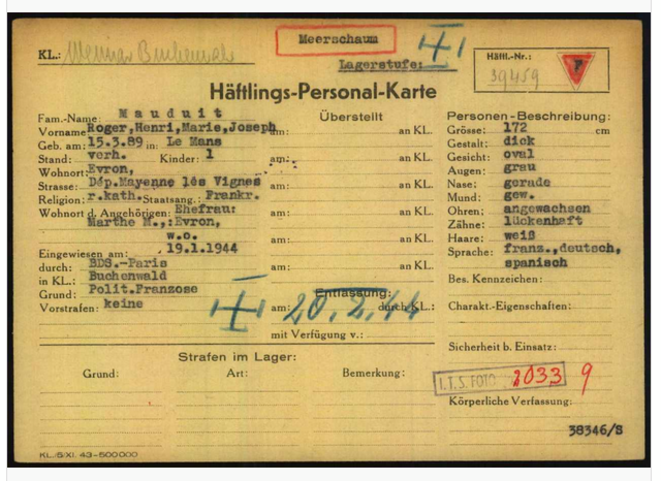 Meerschaum
KL.: Weimar Buchenwald
Lagerstufe:
Häftl.-Nr.:
39459
F
Häftlings-Personal-Karte
Fam.-Name: Mauduit
Vorname Roger,Henri,Marie,Joseph
Geb. am: 15.3.89 in: Le Mans
Stand: verh. Kinder: 1
Wohnort: Evron,
Strasse: Dép.Mayenne lés Vignes
Religion: r.kath. Staatsang.: Frankr.
Wohnort d. Angehörigen: Ehefrau:
Marthe M.,:Evron,
w.o.
Eingewiesen am: 19.1.1944
durch: BDS.-Paris
in KL.: Buchenwald
Grund: Polit.Franzose
Vorstrafen: keine
Überstellt
am: an KL.
am: an KL.
am: an KL.
am: an KL.
am: an KL.
am: an KL.
Entlassung:
am: 20.2.44 durch KL.:
mit Verfügung v.:
Personen-Beschreibung:
Grösse: 172 cm
Gestalt: dick
Gesicht: oval
Augen: grau
Nase: gerade
Mund: gew.
Ohren: angewachsen
Zähne: lückenhaft
Haare: weiß
Sprache: franz.,deutsch,
spanisch
Bes. Kennzeichen:
Charakt.-Eigenschaften:
Sicherheit b. Einsatz:
I.T.S. FOTO 2033 9
Körperliche Verfassung:
38346/S
Strafen im Lager:
Grund: Art: Bemerkung:
KL/5/XI. 43-500000